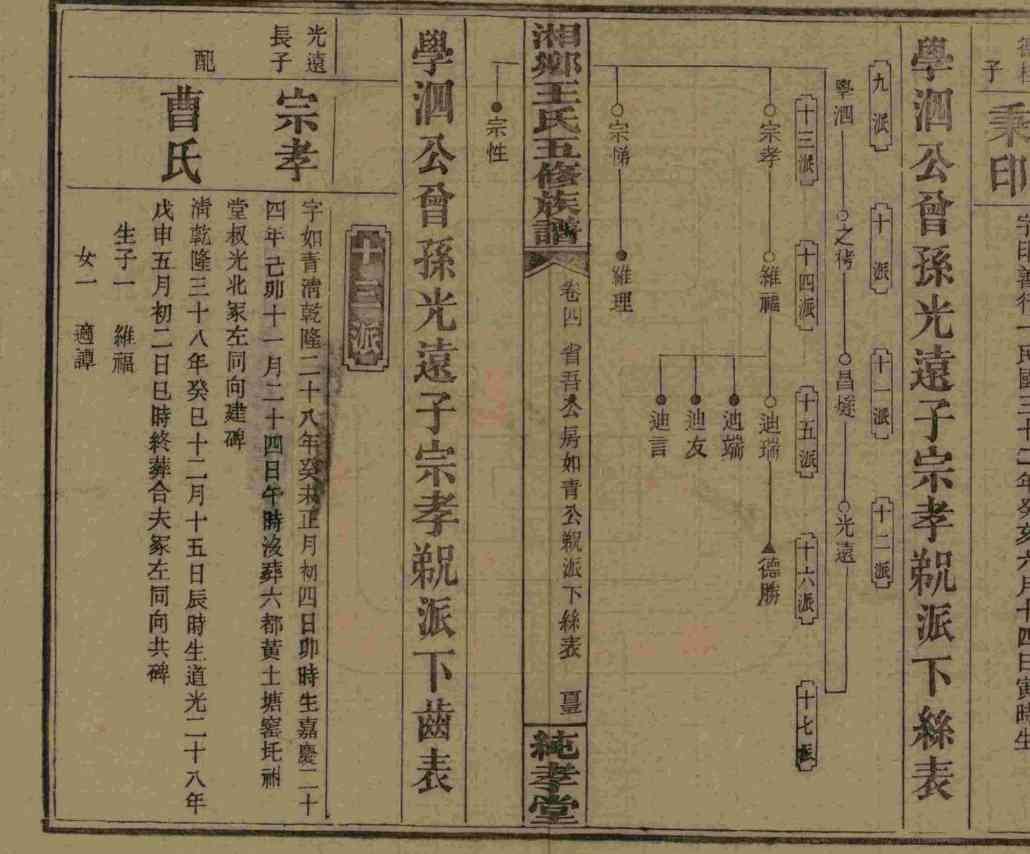 子
秉印
學泗公曾孫光遠子宗孝覡派下絲表
九派
十派
十一派
十二派
學泗
之
昌
光遠
十三派
十四派
十五派
十六派
十七派
宗孝
維福
迪瑞
德勝
迪瑞
迪友
迪言
宗悌
維理
湘鄉王氏五修族譜
卷四
省吾公房如青公覡派下絲表
純孝堂
宗性
學泗公曾孫光遠子宗孝覡派下齒表
十三派
光遠
長子
宗孝
字如青清乾隆二十八年癸未正月初四日卯時生嘉慶二十
四年己卯十一月二十四日午時沒葬六都黃土塘窰坵
堂叔光北冢左同向建碑
配
曹氏
清乾隆三十八年癸巳十二月十五日辰時生道光二十八年
戊申五月初二日巳時終葬合夫冢左同向共碑
生子一 維福
女一 適譚